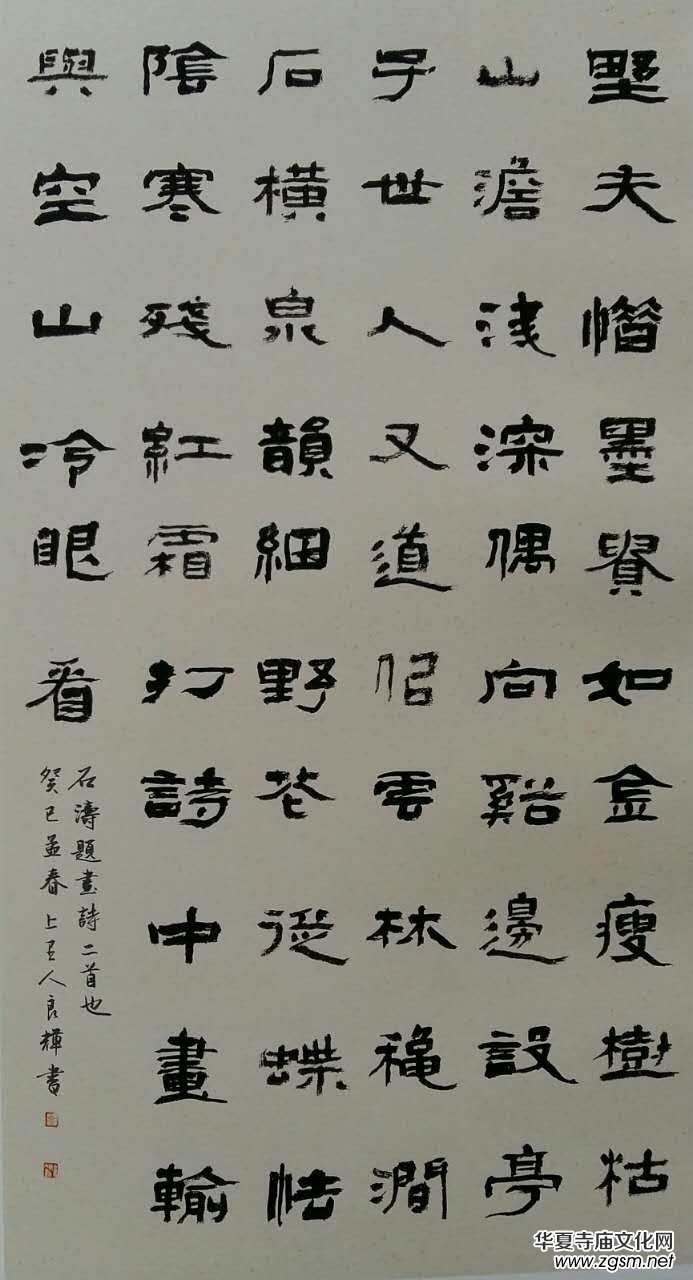 墅夫惜墨貴如金瘦樹枯
山澹淺深偶向谿邊設亭
子世人又道佀雲林穐澗
石橫泉韻細野花從蝶怯
陰寒殘紅霜打詩中畫輸
與空山冷眼看
石濤題畫詩二首也
癸巳孟春上人良輝書
华夏寺庙文化网
www.zgsm.net